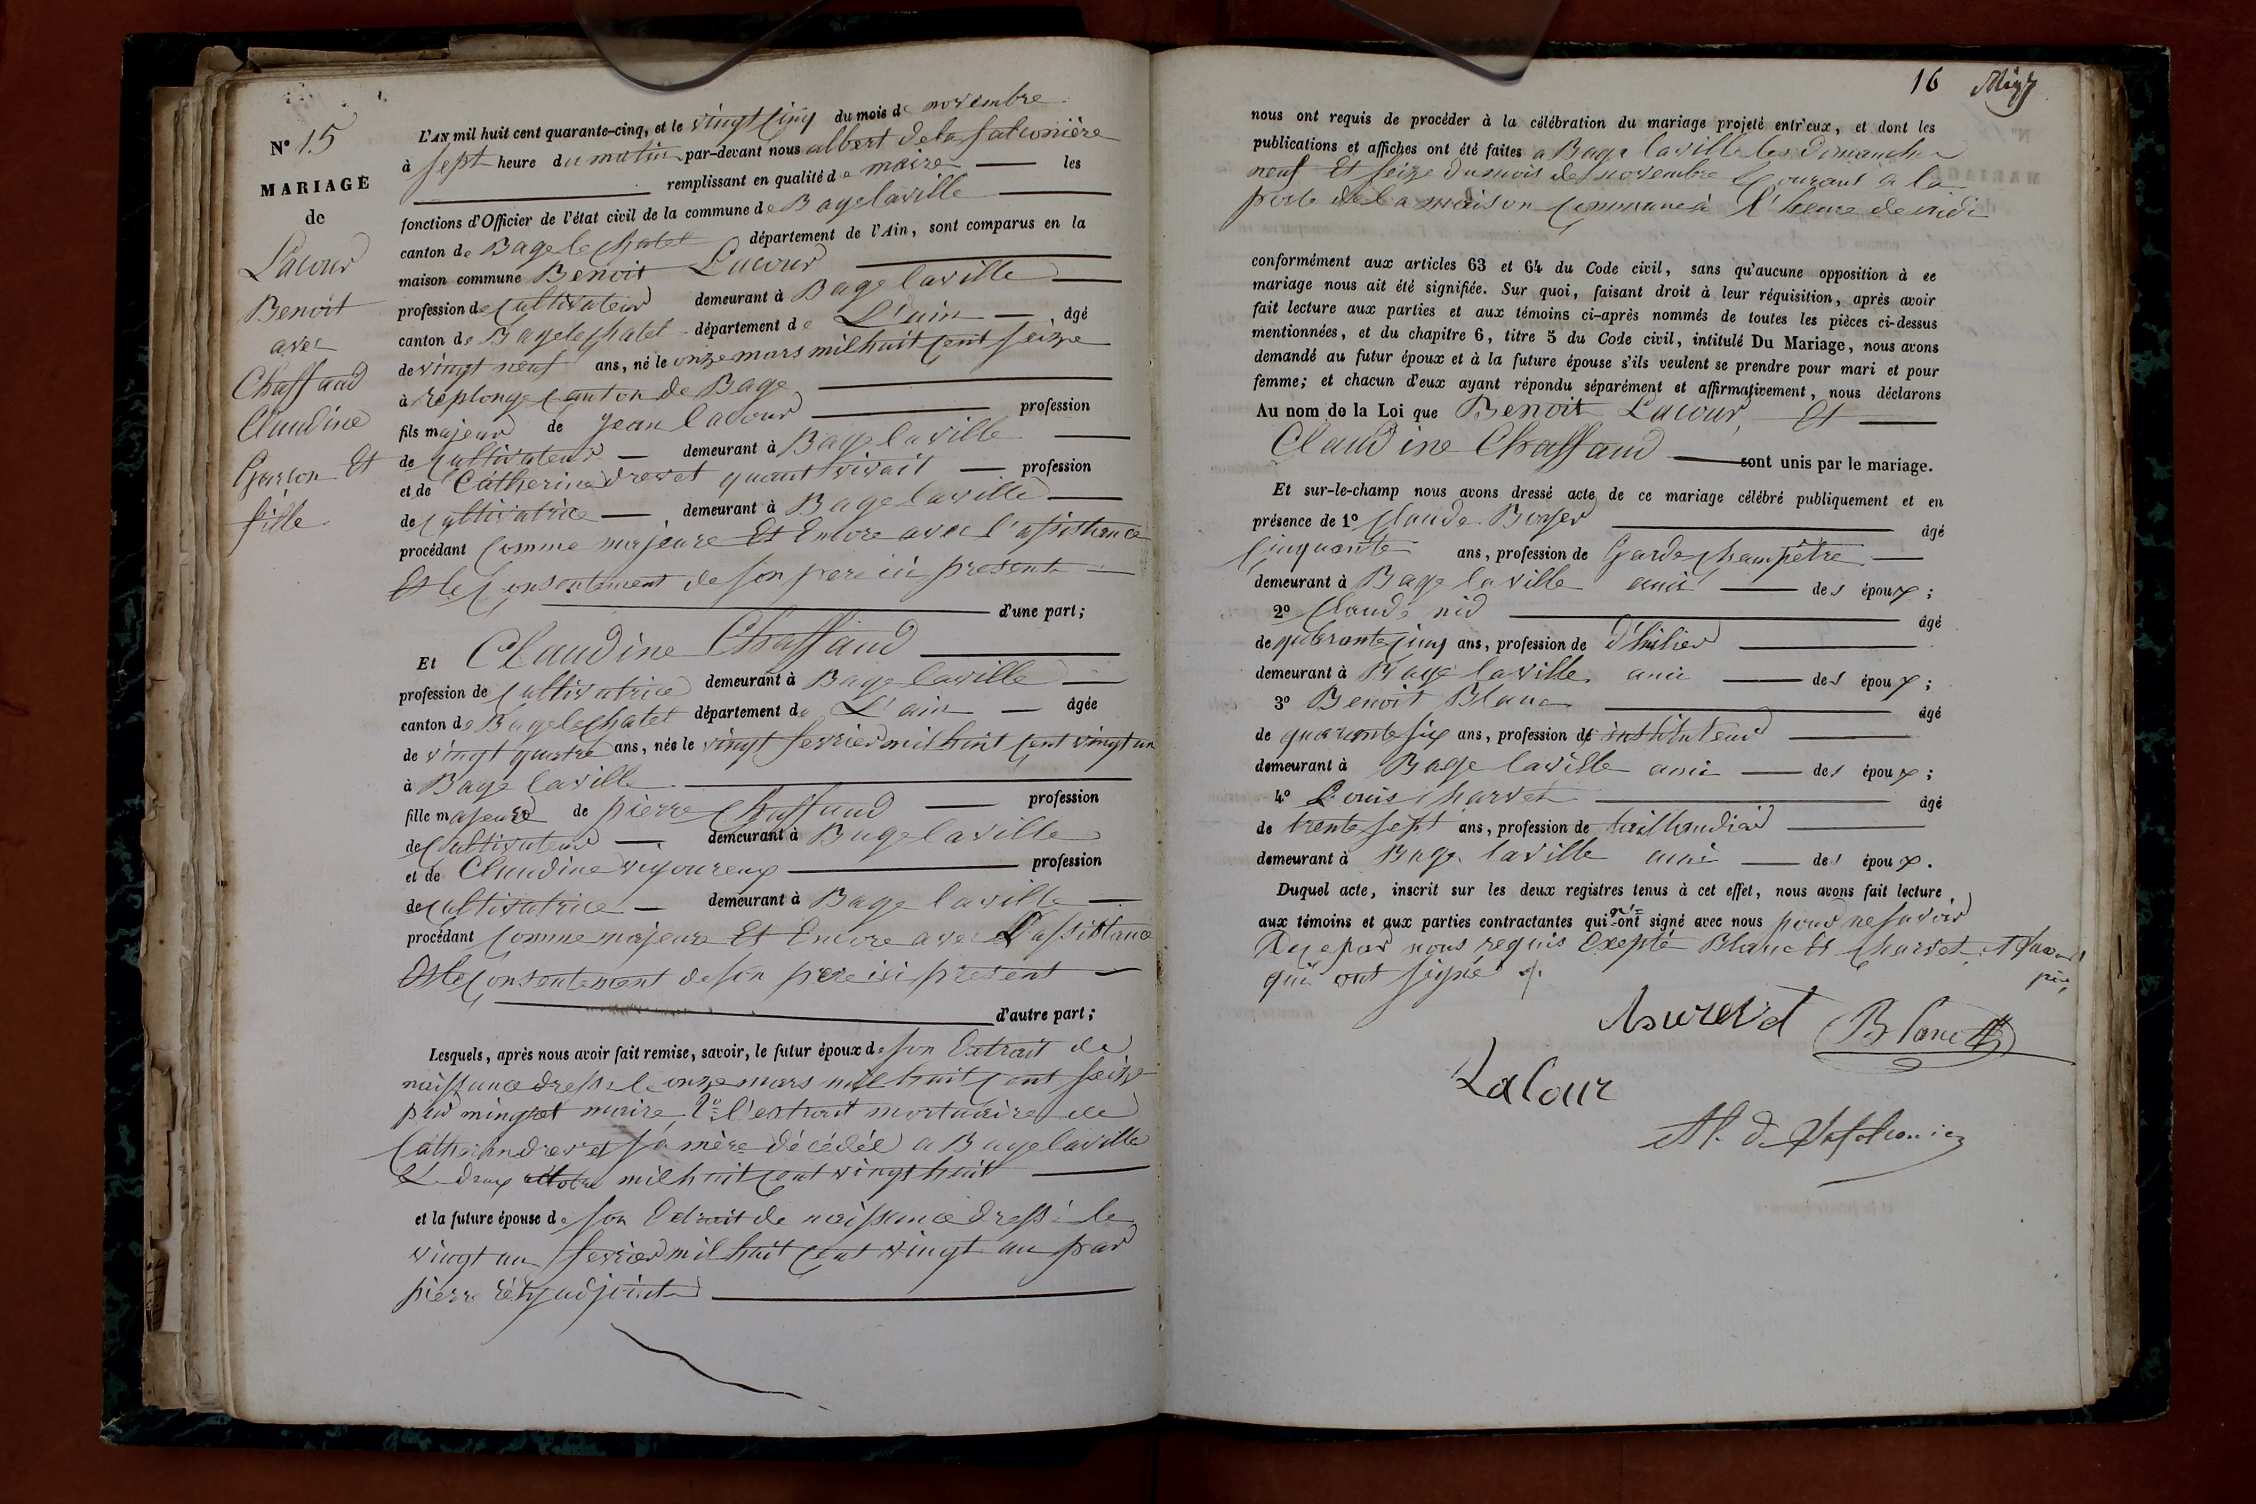 N° 15
MARIAGE
de
Lacour
Benoit
avec
Chaffaud
Claudine
Garçon Et
fille
L'AN mil huit cent quarante-cinq, et le vingt cinq du mois de novembre
à sept heure du matin par-devant nous albert de la falconière
remplissant en qualité de maire les
fonctions d'Officier de l'état civil de la commune de Bage laville
canton de Bage le chatel département de l'Ain, sont comparus en la
maison commune Benoit Lacour
profession de cultivateur demeurant à Bage laville
canton de Bage le chatel département de L'ain âgé
de vingt neuf ans, né le onze mars mil huit cent seize
à replonge canton de Bage
fils majeur de Jean lacour profession
de cultivateur demeurant à Bage laville
et de Catherine drevet quant vivait profession
de cultivatrice demeurant à Bage laville
procédant comme majeure Et Encore avec l'assistance
Et le consentement de son pere ici present
d'une part;
Et Claudine Chaffaud
profession de cultivatrice demeurant à Bage laville
canton de Bage le chatel département de L'ain âgée
de vingt quatre ans, née le vingt fevrier mil huit cent vingt un
à Bage laville
fille majeure de pierre Chaffaud profession
de cultivateur demeurant à Bage laville
et de Claudine vigoureux profession
de cultivatrice demeurant à Bage laville
procédant comme majeure Et Encore avec L'assistance
Et le consentement de son pere ici present
d'autre part;
Lesquels, après nous avoir fait remise, savoir, le futur époux de son Extrait de
naissance dressé le onze mars mil huit cent seize
par mingret maire, 2° l'extrait mortuaire de
Catherin drevet sa mère décédée a Bage laville
Le deux octobre mil huit cent vingt huit
et la future épouse de son Extrait de naissance dressé le
vingt un fevrier mil huit cent vingt un par
pierre rety adjoint
16
nous ont requis de procéder à la célébration du mariage projeté entr'eux, et dont les
publications et affiches ont été faites a Bage laville les dimanche
neuf Et seize du mois de novembre courant a la
porte de la maison commune à l'heure de midi
conformément aux articles 63 et 64 du Code civil, sans qu'aucune opposition à ce
mariage nous ait été signifiée. Sur quoi, faisant droit à leur réquisition, après avoir
fait lecture aux parties et aux témoins ci-après nommés de toutes les pièces ci-dessus
mentionnées, et du chapitre 6, titre 5 du Code civil, intitulé Du Mariage, nous avons
demandé au futur époux et à la future épouse s'ils veulent se prendre pour mari et pour
femme; et chacun d'eux ayant répondu séparément et affirmativement, nous déclarons
Au nom de la Loi que Benoit Lacour, Et
Claudine Chaffaud sont unis par le mariage.
Et sur-le-champ nous avons dressé acte de ce mariage célébré publiquement et en
présence de 1° Claude Boyer âgé
cinquante ans, profession de Garde champêtre
demeurant à Bage laville ami des époux;
2° Claude nid âgé
de quarante cinq ans, profession de
demeurant à Bage laville ami des époux;
3° Benoit Blanc âgé
de quarante six ans, profession de instituteur
demeurant à Bage laville ami des époux;
4° Louis charvet âgé
de trente sept ans, profession de taillandier
demeurant à Bage laville ami des époux.
Duquel acte, inscrit sur les deux registres tenus à cet effet, nous avons fait lecture
aux témoins et aux parties contractantes qui n'ont signé avec nous pour ne savoir
de ce par nous requis Exepté Blanc Et Charvet, Et Lacour
père,
qui ont signé
Blanc
Lacour